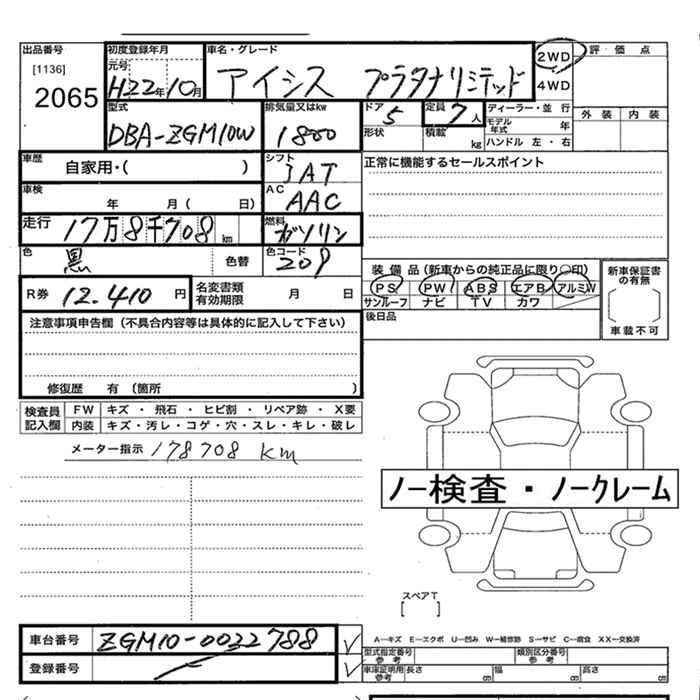 出品番号 初度登録年月 車名・グレード 2WD 評価点
[1136] 元号 アイシス プラタナリミテッド
2065 H22年10月 4WD
型式 排気量又はkw ドア 定員 ディーラー・並行 外装 内装
DBA-ZGM10W 1800 5 7人 モデル年式 年
形状 積載 kg ハンドル 左・右
車歴 自家用・( ) シフト 正常に機能するセールスポイント
IAT
車検 年 月( 日) AC
AAC
走行 17万8千708km 燃料 ガソリン
色 黒 色替 色コード 209
装備品(新車からの純正品に限り○印) 新車保証書の有無
R券 12.410円 名変書類有効期限 月 日 PS PW ABS エアB アルミW
サンルーフ ナビ TV カワ
注意事項申告欄(不具合内容等は具体的に記入して下さい) 後日品 車載不可
修復歴 有(箇所 )
検査員記入欄 FW キズ・飛石・ヒビ割・リペア跡・X要
内装 キズ・汚レ・コゲ・穴・スレ・キレ・破レ
メーター指示 178708 km
ノー検査・ノークレーム
スペアT
[ ]
車台番号 ZGM10-0032788
A―キズ E―エクボ U―凹み W―補修跡 S―サビ C―腐食 XX―交換済
登録番号
型式指定番号参考 類別区分番号参考
車庫証明用参考 長さ 幅 高さ